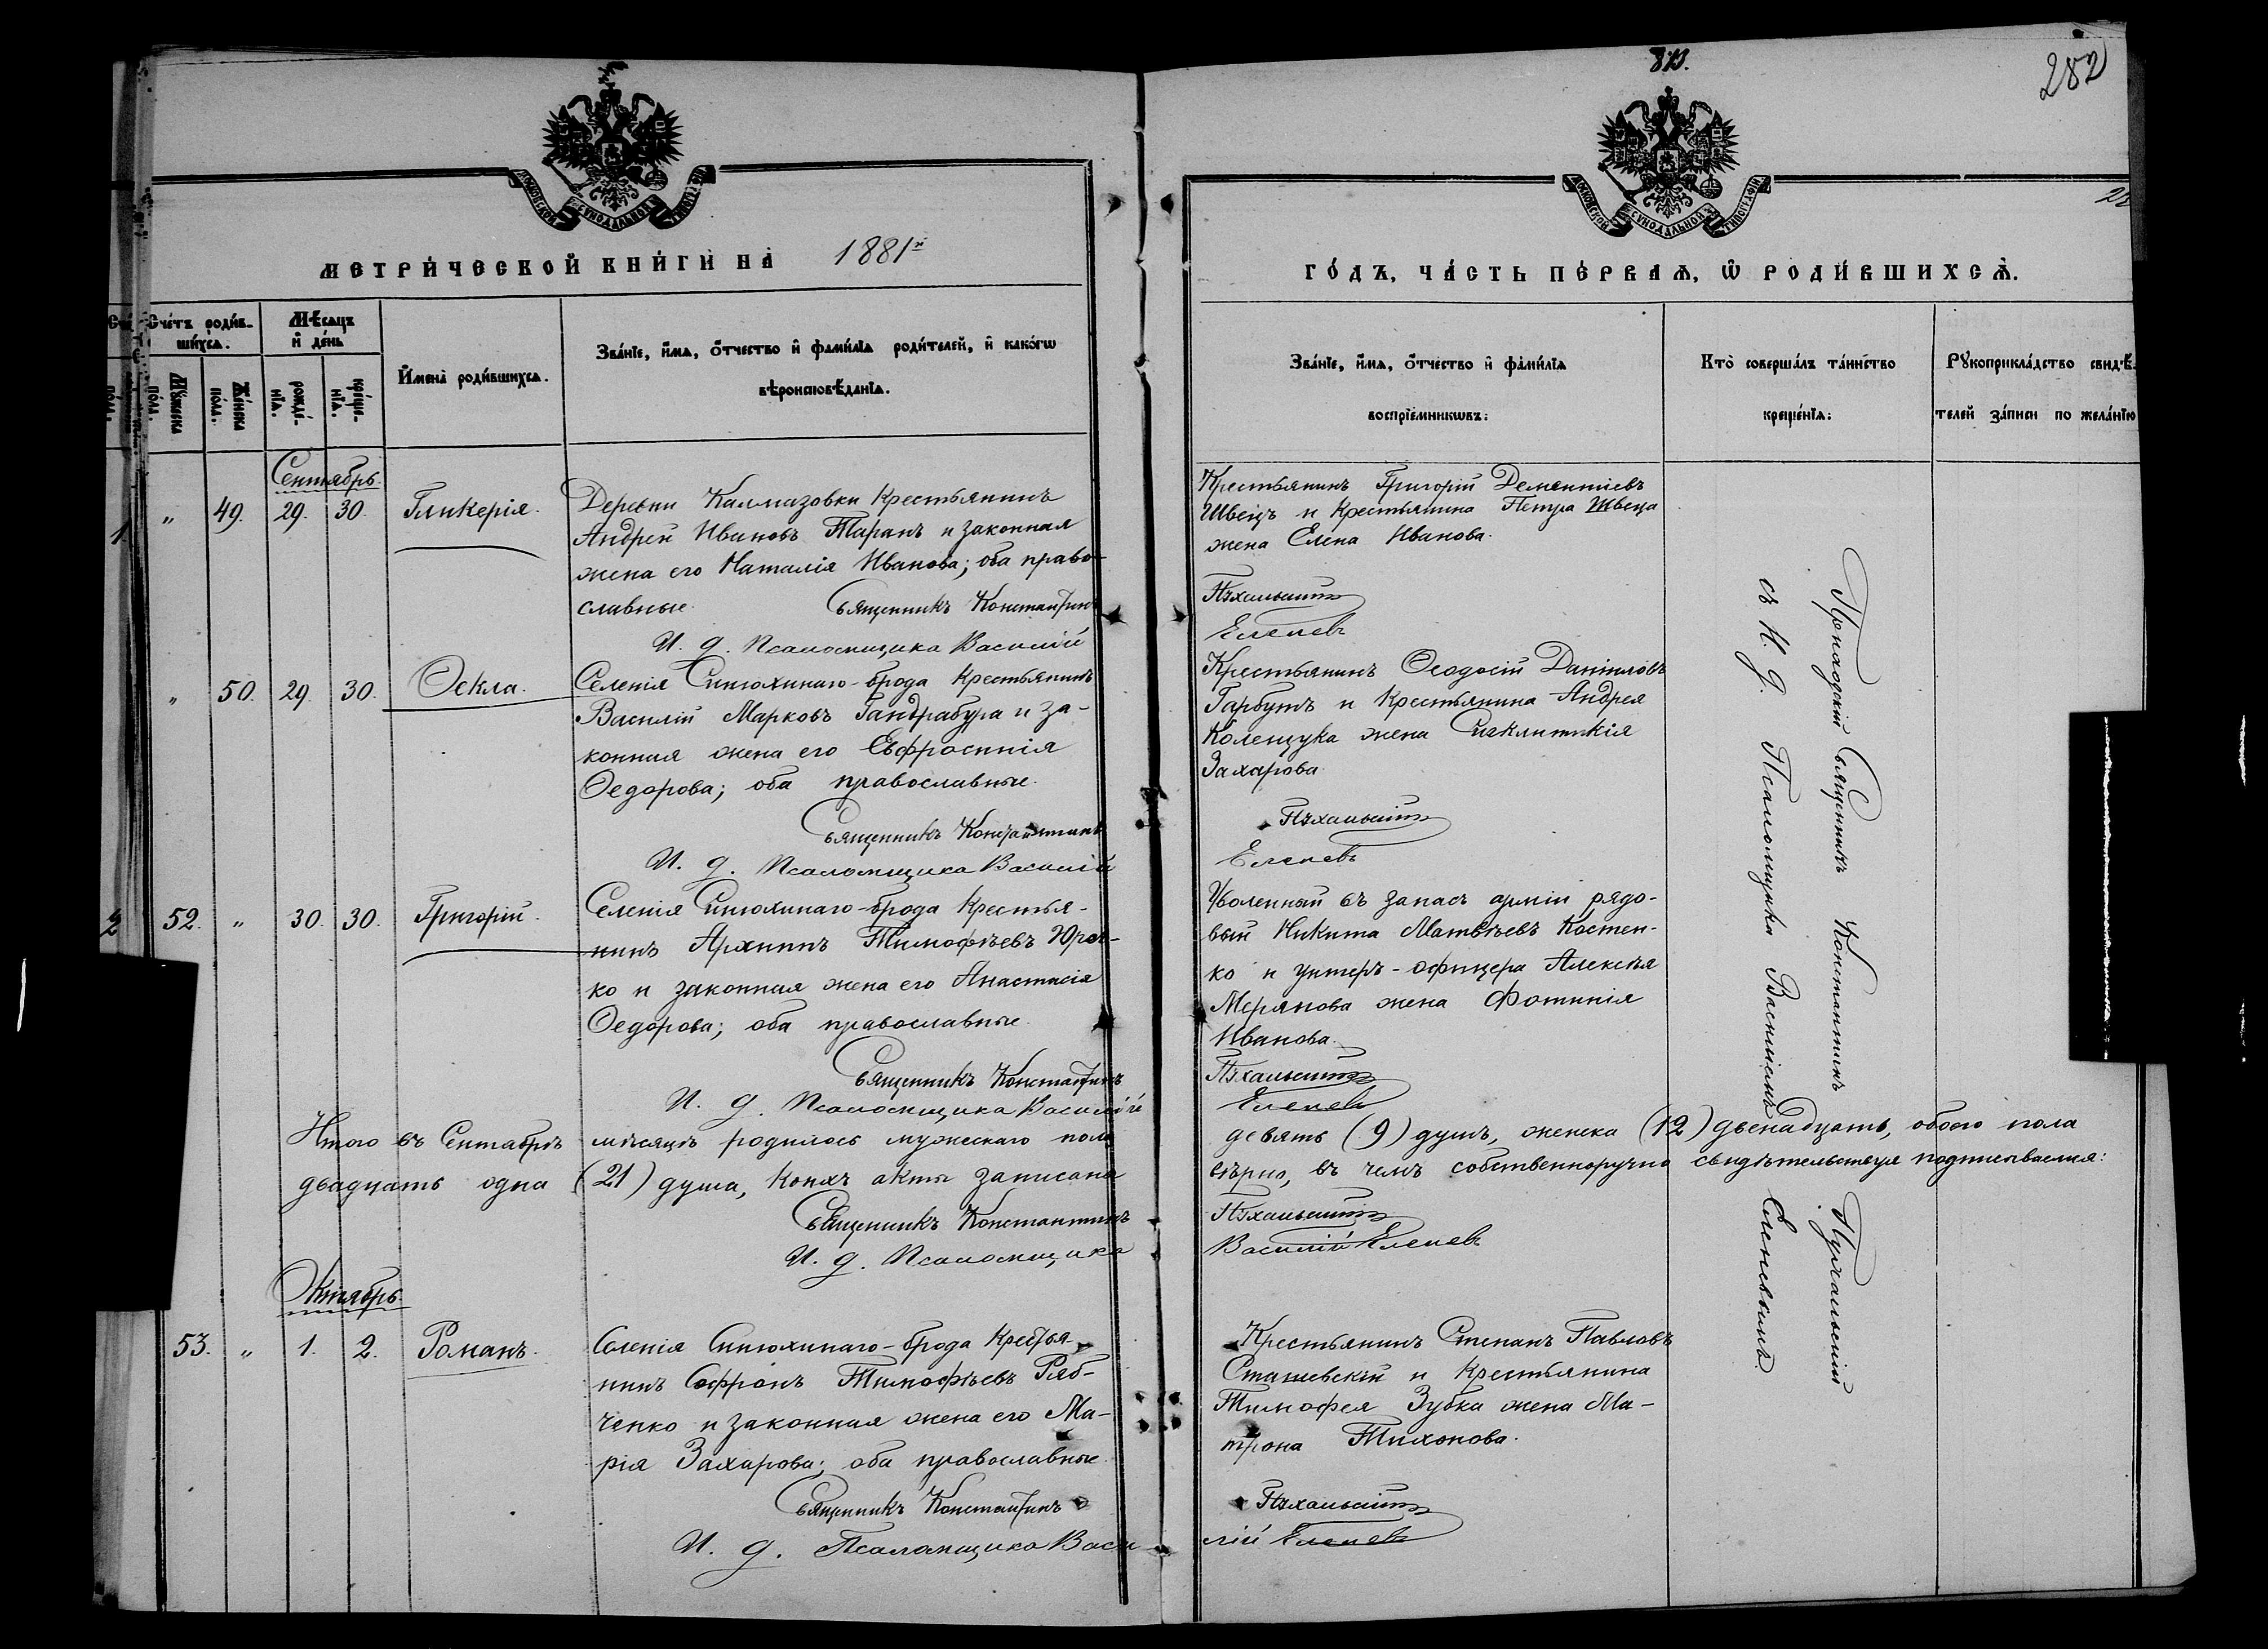 813.
282
МОСКОВСКОЙ СУНОДАЛЬНОЙ ТИПОГРАФІИ
МОСКОВСКОЙ СУНОДАЛЬНОЙ ТИПОГРАФІИ
МЕТРИ́ЧЕСКОЙ КНИ́ГИ НА 1881й
ГО́ДЪ, ЧА́СТЬ ПЕ́РВАѦ, Ѡ РОДИ́ВШИХСѦ.
Сче́тъ роди́в-
шихсѧ.
Мѣ́сѧцъ
и҆ де́нь
Мꙋ́жеска по́ла.
Же́нска по́ла.
рожде́-
нїѧ.
креще́-
нїѧ.
И҆мена̀ роди́вшихсѧ.
Зва́нїе, и҆́мѧ, ѻ҆́тчество и҆ фами́лїѧ роди́телей, и҆ како́гѡ
вѣроисповѣ́данїѧ.
Зва́нїе, и҆́мѧ, ѻ҆́тчество и҆ фами́лїѧ
воспрїе́мникѡвъ:
Кто̀ соверша́лъ та́инство
креще́нїѧ:
Рꙋкоприкла́дство свидѣ́-
телей за́писи по жела́нїю
Сентябрь.
„ 49. 29. 30. Гликерія.
Деревни Калмазовки Крестьянинъ
Андрей Ивановъ Таранъ и законная
жена его Наталія Иванова; оба право-
славные.
Священникъ Константинъ
И. д. Псаломщика Василій
Крестьянинъ Григорій Дементіевъ
Швецъ и Крестьянина Петра Швеца
жена Елена Иванова.
Пухальскій
Еленевъ
„ 50. 29. 30. Ѳекла.
Селенія Синюхинаго-брода Крестьянинъ
Василій Марковъ Гандрабура и за-
конная жена его Евфросинія
Ѳедорова; оба православные.
Священникъ Константинъ
И. д. Псаломщика Василій
Крестьянинъ Ѳеодосій Даніиловъ
Гарбузъ и Крестьянина Андрея
Коленчука жена Сигклитикія
Захарова.
Пухальскій
Еленевъ
52. „ 30. 30. Григорій.
Селенія Синюхинаго-брода Крестья-
нинъ Архипъ Тимофѣевъ Юрч-
ко и законная жена его Анастасія
Ѳедорова; оба православные.
Священникъ Константинъ
И. д. Псаломщика Василій
Уволенный въ запасъ арміи рядо-
вый Никита Матвѣевъ Костен-
ко и унтеръ-офицера Алексѣя
Мерянова жена Фотинія
Иванова.
Пухальскій
Еленевъ
Итого въ Сентябрѣ мѣсяцѣ родилось мужескаго пола девять (9) душъ, женска (12) двенадцать, обоего пола
двадцать одна (21) душа, коихъ акты записаны вѣрно, въ чемъ собственноручно свидѣтельствуя подписываемся:
Священникъ Константинъ Пухальскій
И. д. Псаломщика Василій Еленевъ
Октябрь.
53. „ 1. 2. Романъ.
Селенія Синюхинаго-брода Крестья-
нинъ Софронъ Тимофѣевъ Ряб-
ченко и законная жена его Ма-
рія Захарова; оба православные.
Священникъ Константинъ
И. д. Псаломщика Васи
Крестьянинъ Степанъ Павловъ
Сташевскій и Крестьянина
Тимофея Зубка жена Ма-
трона Тихонова.
Пухальскій
лій Еленевъ
Приходскій Священникъ Константинъ Пухальскій
съ И. д. Псаломщика Василіемъ Еленевымъ.